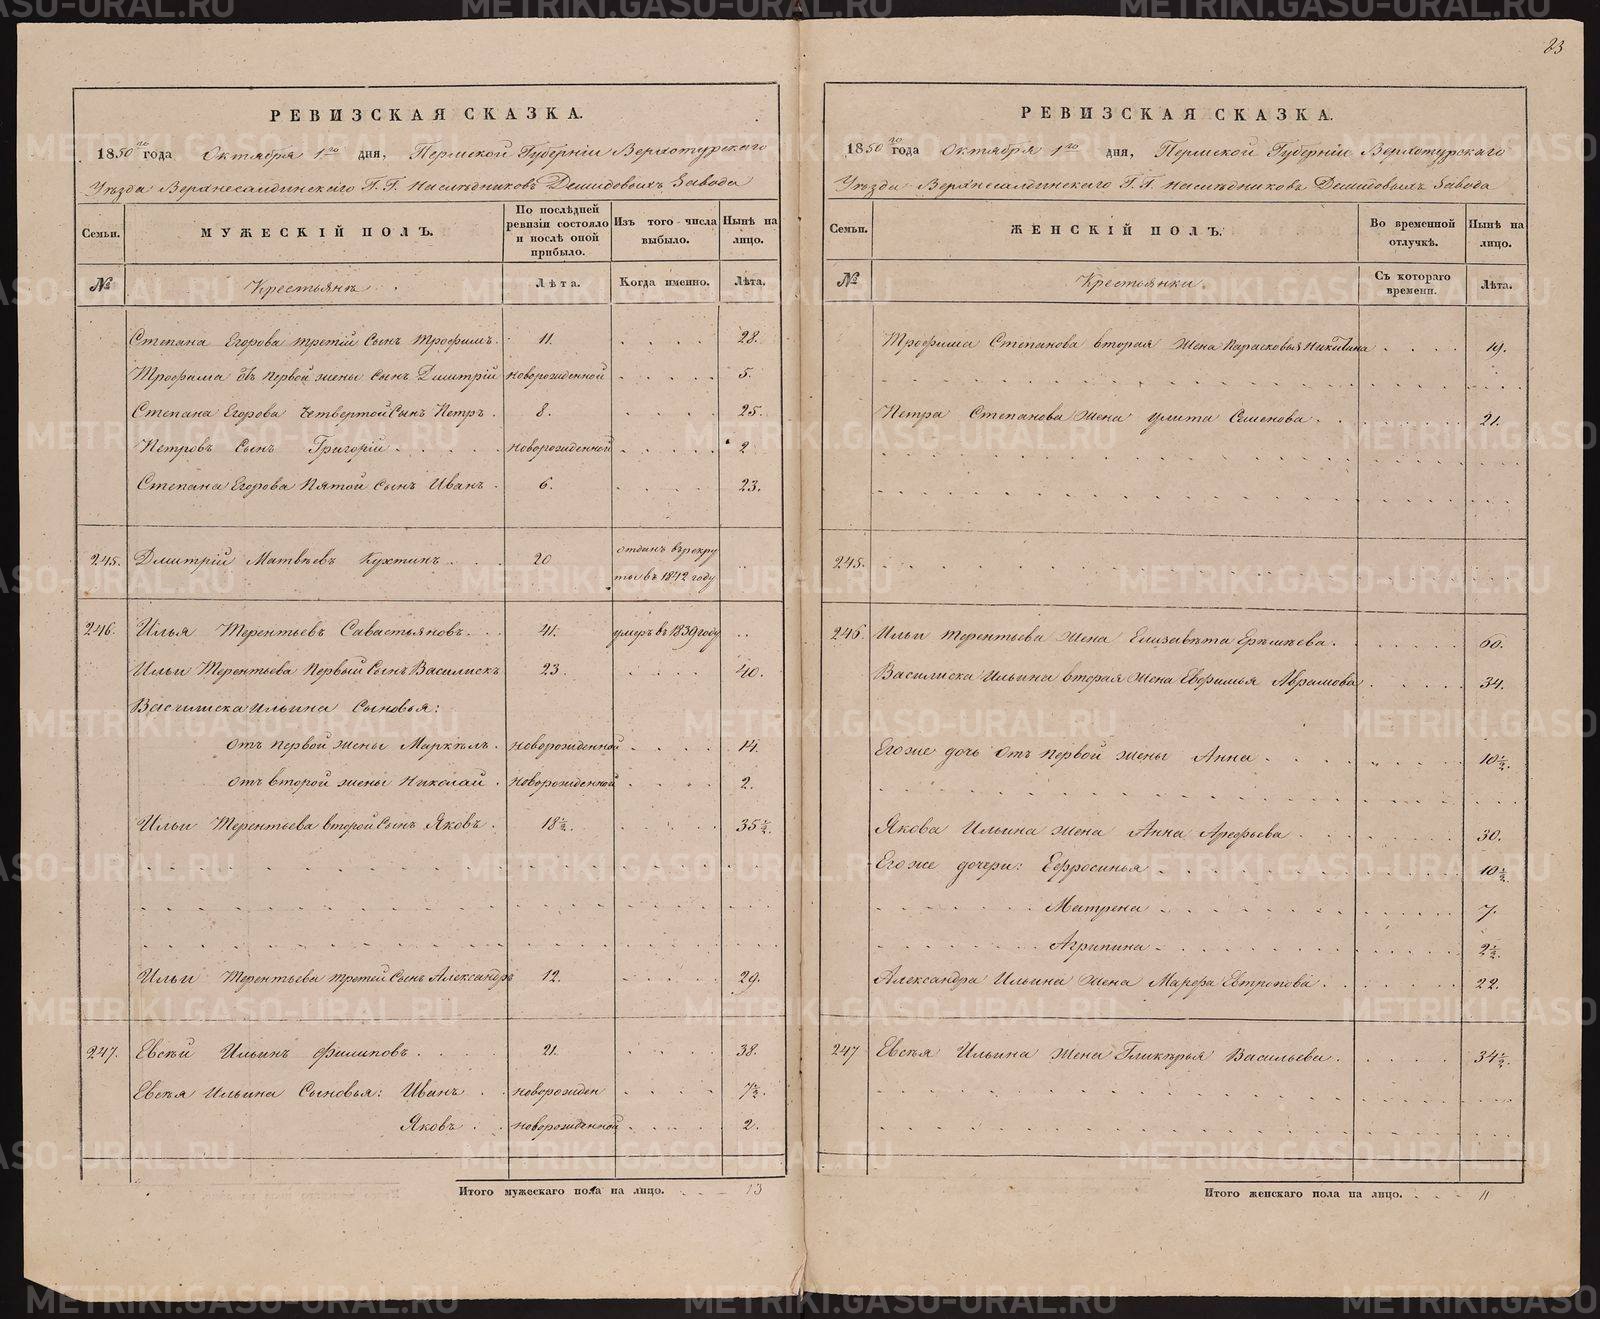 23
РЕВИЗСКАЯ СКАЗКА.
1850го года Октября 1го дня, Пермской Губерніи Верхотурскаго
Уѣзда Верхнесалдинскаго Г.Г. Наслѣдниковъ Демидовыхъ Завода
Семьи. МУЖЕСКІЙ ПОЛЪ. По послѣдней ревизіи состояло и послѣ оной прибыло. Изъ того числа выбыло. Нынѣ на лицо.
№ Крестьянъ. Лѣта. Когда именно. Лѣта.
Степана Егорова третій сынъ Трофимъ. 11. 28.
Трофима отъ первой жены сынъ Димитрій новорожденной 5.
Степана Егорова Четвертой Сынъ Петръ. 8. 25.
Петровъ сынъ Григорій новорожденной 2
Степана Егорова Пятой сынъ Иванъ. 6. 23.
245. Дмитрій Матвѣевъ Кухтинъ 20 отданъ въ рекру
ты въ 1842 году
246. Илья Терентьевъ Савастьяновъ. 41. умръ въ 1839 году
Ильи Терентьева Первый Сынъ Василискъ 23. 40.
Василиска Ильина Сыновья:
отъ первой жены Маркѣлъ. новорожденной 14.
отъ второй жены Николай. новорожденной 2.
Ильи Терентьева второй сынъ Яковъ. 18½. 35½.
Ильи Терентьева третей Сынъ Александръ 12. 29.
247. Евсѣй Ильинъ Филиповъ 21. 38.
Евсѣя Ильина Сыновья: Иванъ новорожден 7½.
Яковъ новорожденной 2.
Итого мужескаго пола на лицо. 13
РЕВИЗСКАЯ СКАЗКА.
1850го года Октября 1го дня, Пермской Губерніи Верхотурскаго
Уѣзда Верхнесалдинскаго Г.Г. Наслѣдниковъ Демидовыхъ Завода
Семьи. ЖЕНСКІЙ ПОЛЪ. Во временной отлучкѣ. Нынѣ на лицо.
№ Крестьянки. Съ котораго времени. Лѣта.
Трофима Степанова вторая жена Парасковья Никитина 19.
Петра Степанова жена Улита Семенова. 21.
245.
246. Ильи Терентьева жена Елизавѣта Еремѣева. 60.
Василиска Ильина вторая жена Евфимья Аврамова 34.
Егоже дочь отъ первой жены Анна 10½.
Якова Ильина жена Анна Арефьева 30.
Егоже дочери: Ефросинья 10½.
Матрена 7.
Агрипина 2½.
Александра Ильина жена Марфа Евтропова. 22.
247 Евсѣя Ильина жена Гликѣрья Васильева. 34½.
Итого женскаго пола на лицо. 11
METRIKI.GASO-URAL.RU